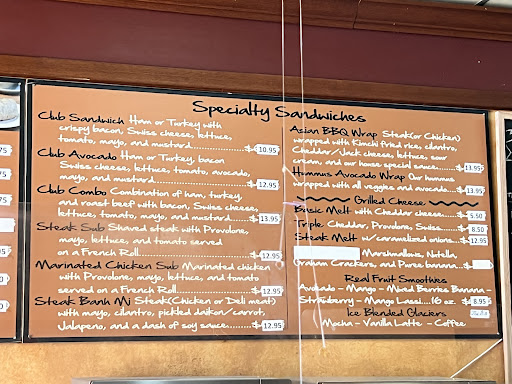 Specialty Sandwiches
Club Sandwich Ham or Turkey with
crispy bacon, Swiss cheese, lettuce,
tomato, mayo, and mustard $ 10.95
Club Avocado Ham or Turkey, bacon
Swiss cheese, lettuce, tomato, avocado,
mayo, and mustard $ 12.95
Club Combo Combination of ham, turkey,
and roast beef with bacon, Swiss cheese,
lettuce, tomato, mayo, and mustard $ 13.95
Steak Sub Shaved steak with Provolone,
mayo, lettuce, and tomato served
on a French Roll $ 12.95
Marinated Chicken Sub Marinated chicken
with Provolone, mayo, lettuce, and tomato
served on a French Roll $ 12.95
Steak Banh Mi Steak (Chicken or Deli meat)
with mayo, cilantro, pickled daikon/carrot,
Jalapeno, and a dash of soy sauce $ 12.95
Asian BBQ Wrap Steak (or Chicken)
wrapped with Kimchi fried rice, cilantro,
Cheddar/Jack cheese, lettuce, sour
cream, and our house special sauce $ 13.95
Hummus Avocado Wrap Our hummus
wrapped with all veggies and avocado $ 13.95
Grilled Cheese
Basic Melt with Cheddar cheese $ 5.50
Triple Cheddar, Provolone, Swiss $ 8.50
Steak Melt w/caramelized onion $ 12.95
Marshmallows, Nutella,
Graham Crackers, and Puree banana $
Real Fruit Smoothies
Avocado - Mango - Mixed Berries Banana -
Strawberry - Mango Lassi....16 oz. $ 8.95
Ice Blended Glaciers
Mocha - Vanilla Latte - Coffee
75
75